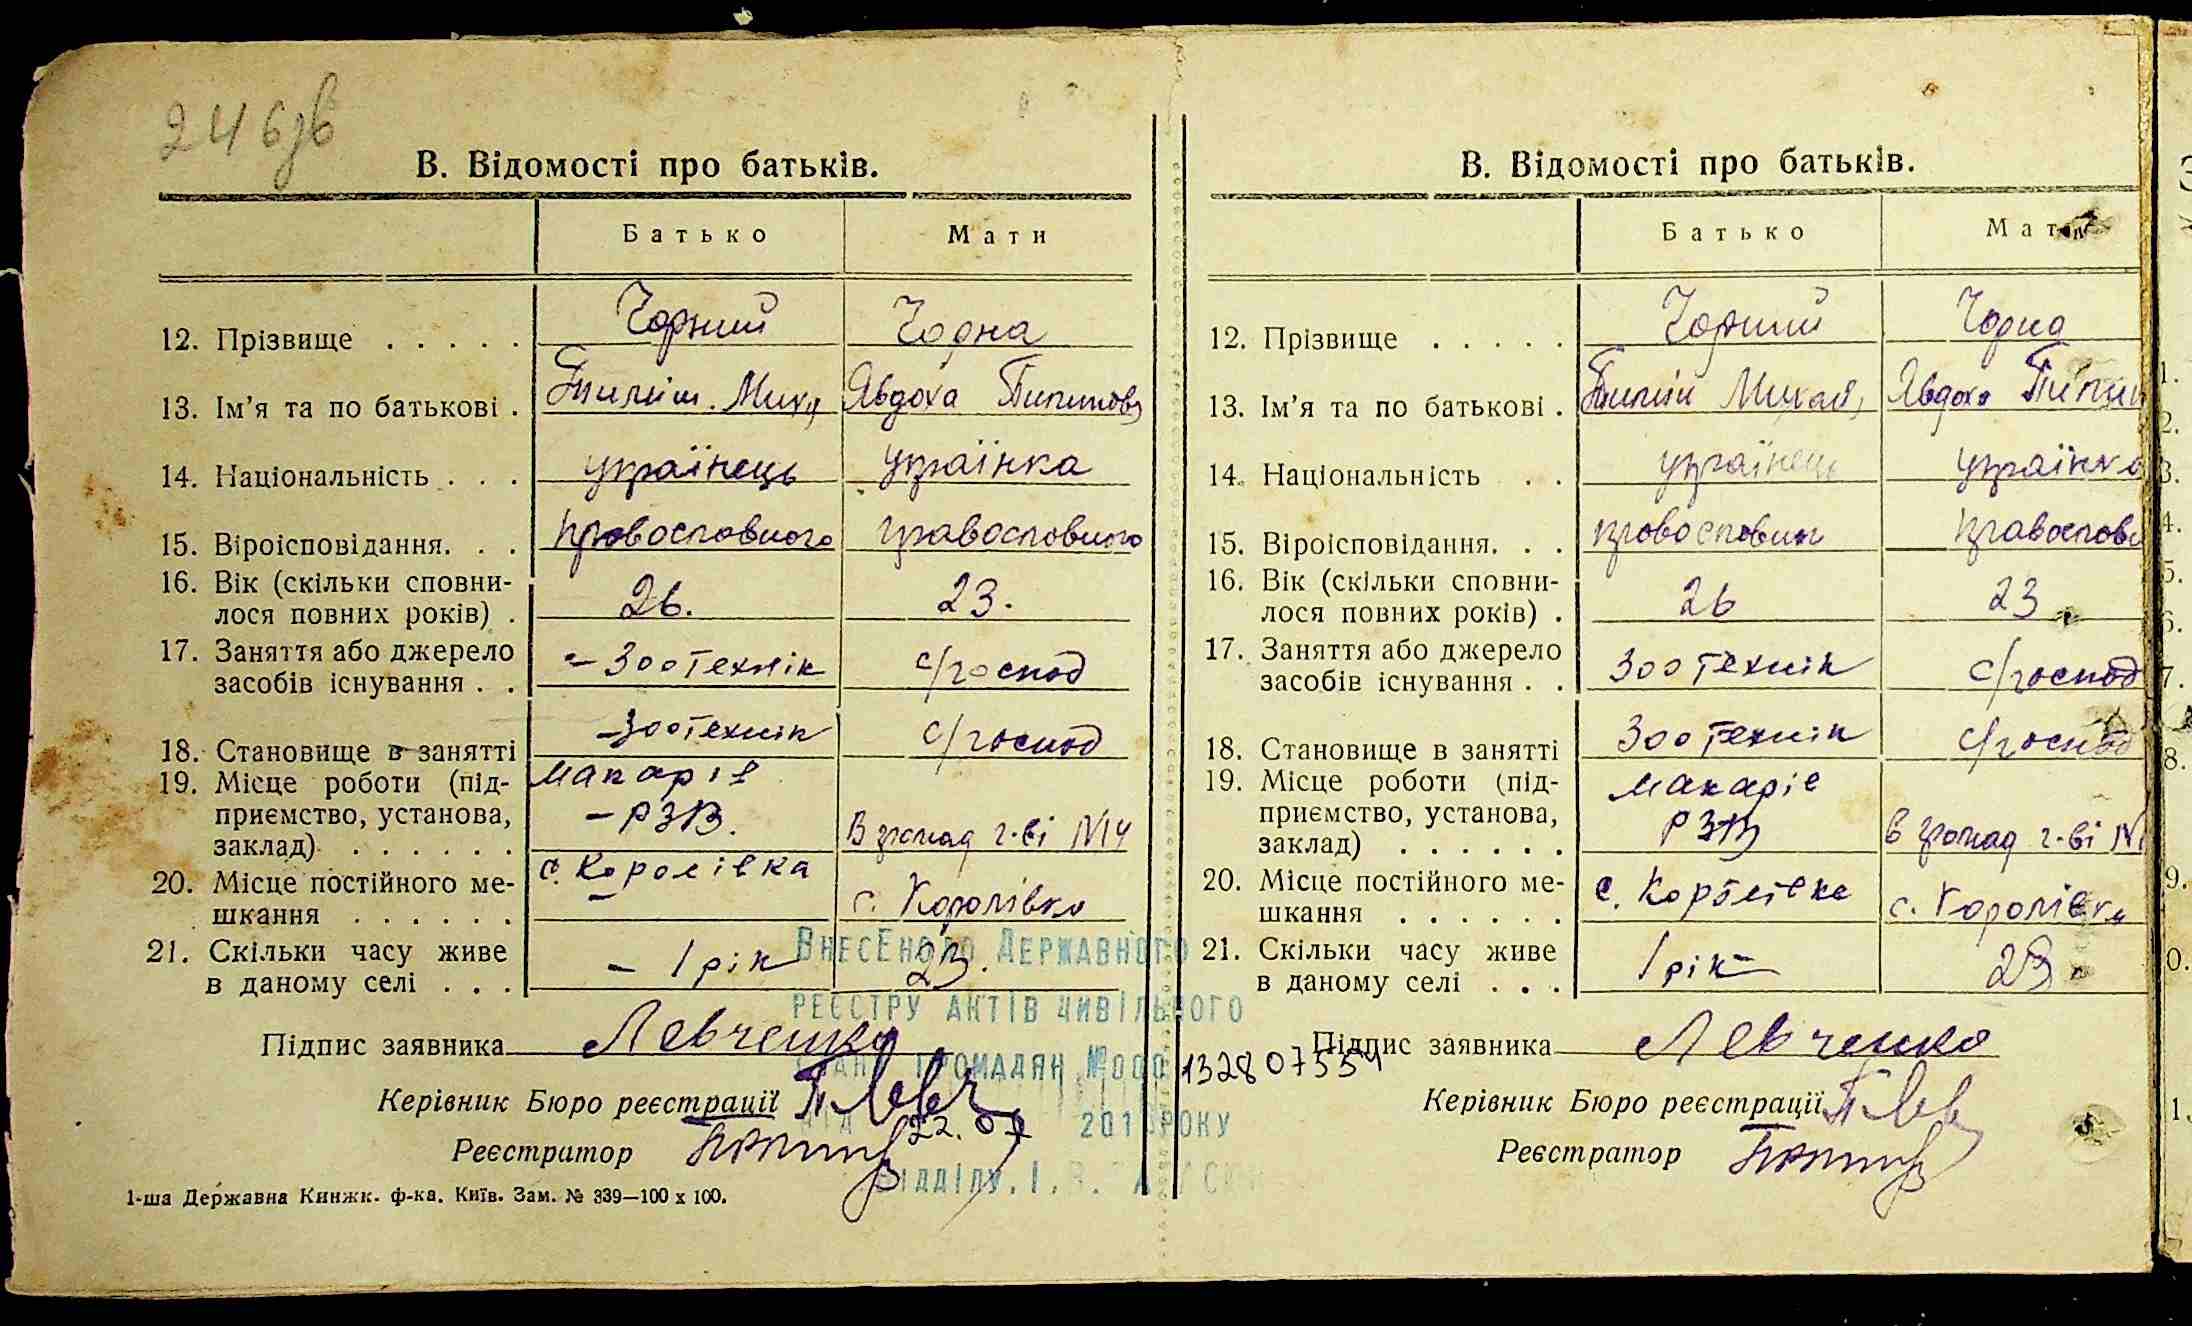 246зв
В. Відомості про батьків.
Батько Мати
12. Прізвище . . . . . Чорний Чорна
13. Ім'я та по батькові . Пилип. Миха Явдоха Пилипова
14. Національність . . . українець українка
15. Віроісповідання. . . православного православного
16. Вік (скільки сповни-
лося повних років) . 26. 23.
17. Заняття або джерело
засобів існування . . – Зоотехнік с/господ
18. Становище в занятті – зоотехнік с/господ
19. Місце роботи (під-
приємство, установа,
заклад) . . . . . . Макарів – РЗВ. В громад г-ві №14
20. Місце постійного ме-
шкання . . . . . . с. Королівка с. Королівка
21. Скільки часу живе
в даному селі . . . – 1 рік 23.
Підпис заявника Левченко
Керівник Бюро реєстрації
Реєстратор
1-ша Державна Книжк. ф-ка. Київ. Зам. № 339—100 х 100.
Внесено до Державного
реєстру актів цивільного
стану громадян №000 1328 07554
22.07 201 року
відділу. І. В.
В. Відомості про батьків.
Батько Мат
12. Прізвище . . . . . Чорний Чорна
13. Ім'я та по батькові . Пилип Михай, Явдоха Пилип
14. Національність . . українець українка
15. Віроісповідання. . . православн православн
16. Вік (скільки сповни-
лося повних років) . 26 23
17. Заняття або джерело
засобів існування . . Зоотехнік с/господ
18. Становище в занятті Зоотехнік с/господ
19. Місце роботи (під-
приємство, установа,
заклад) . . . . . . Макарів РЗВ В громад г-ві №
20. Місце постійного ме-
шкання . . . . . . с. Королівка с. Королівка
21. Скільки часу живе
в даному селі . . . 1 рік 23
Підпис заявника Левченко
Керівник Бюро реєстрації
Реєстратор